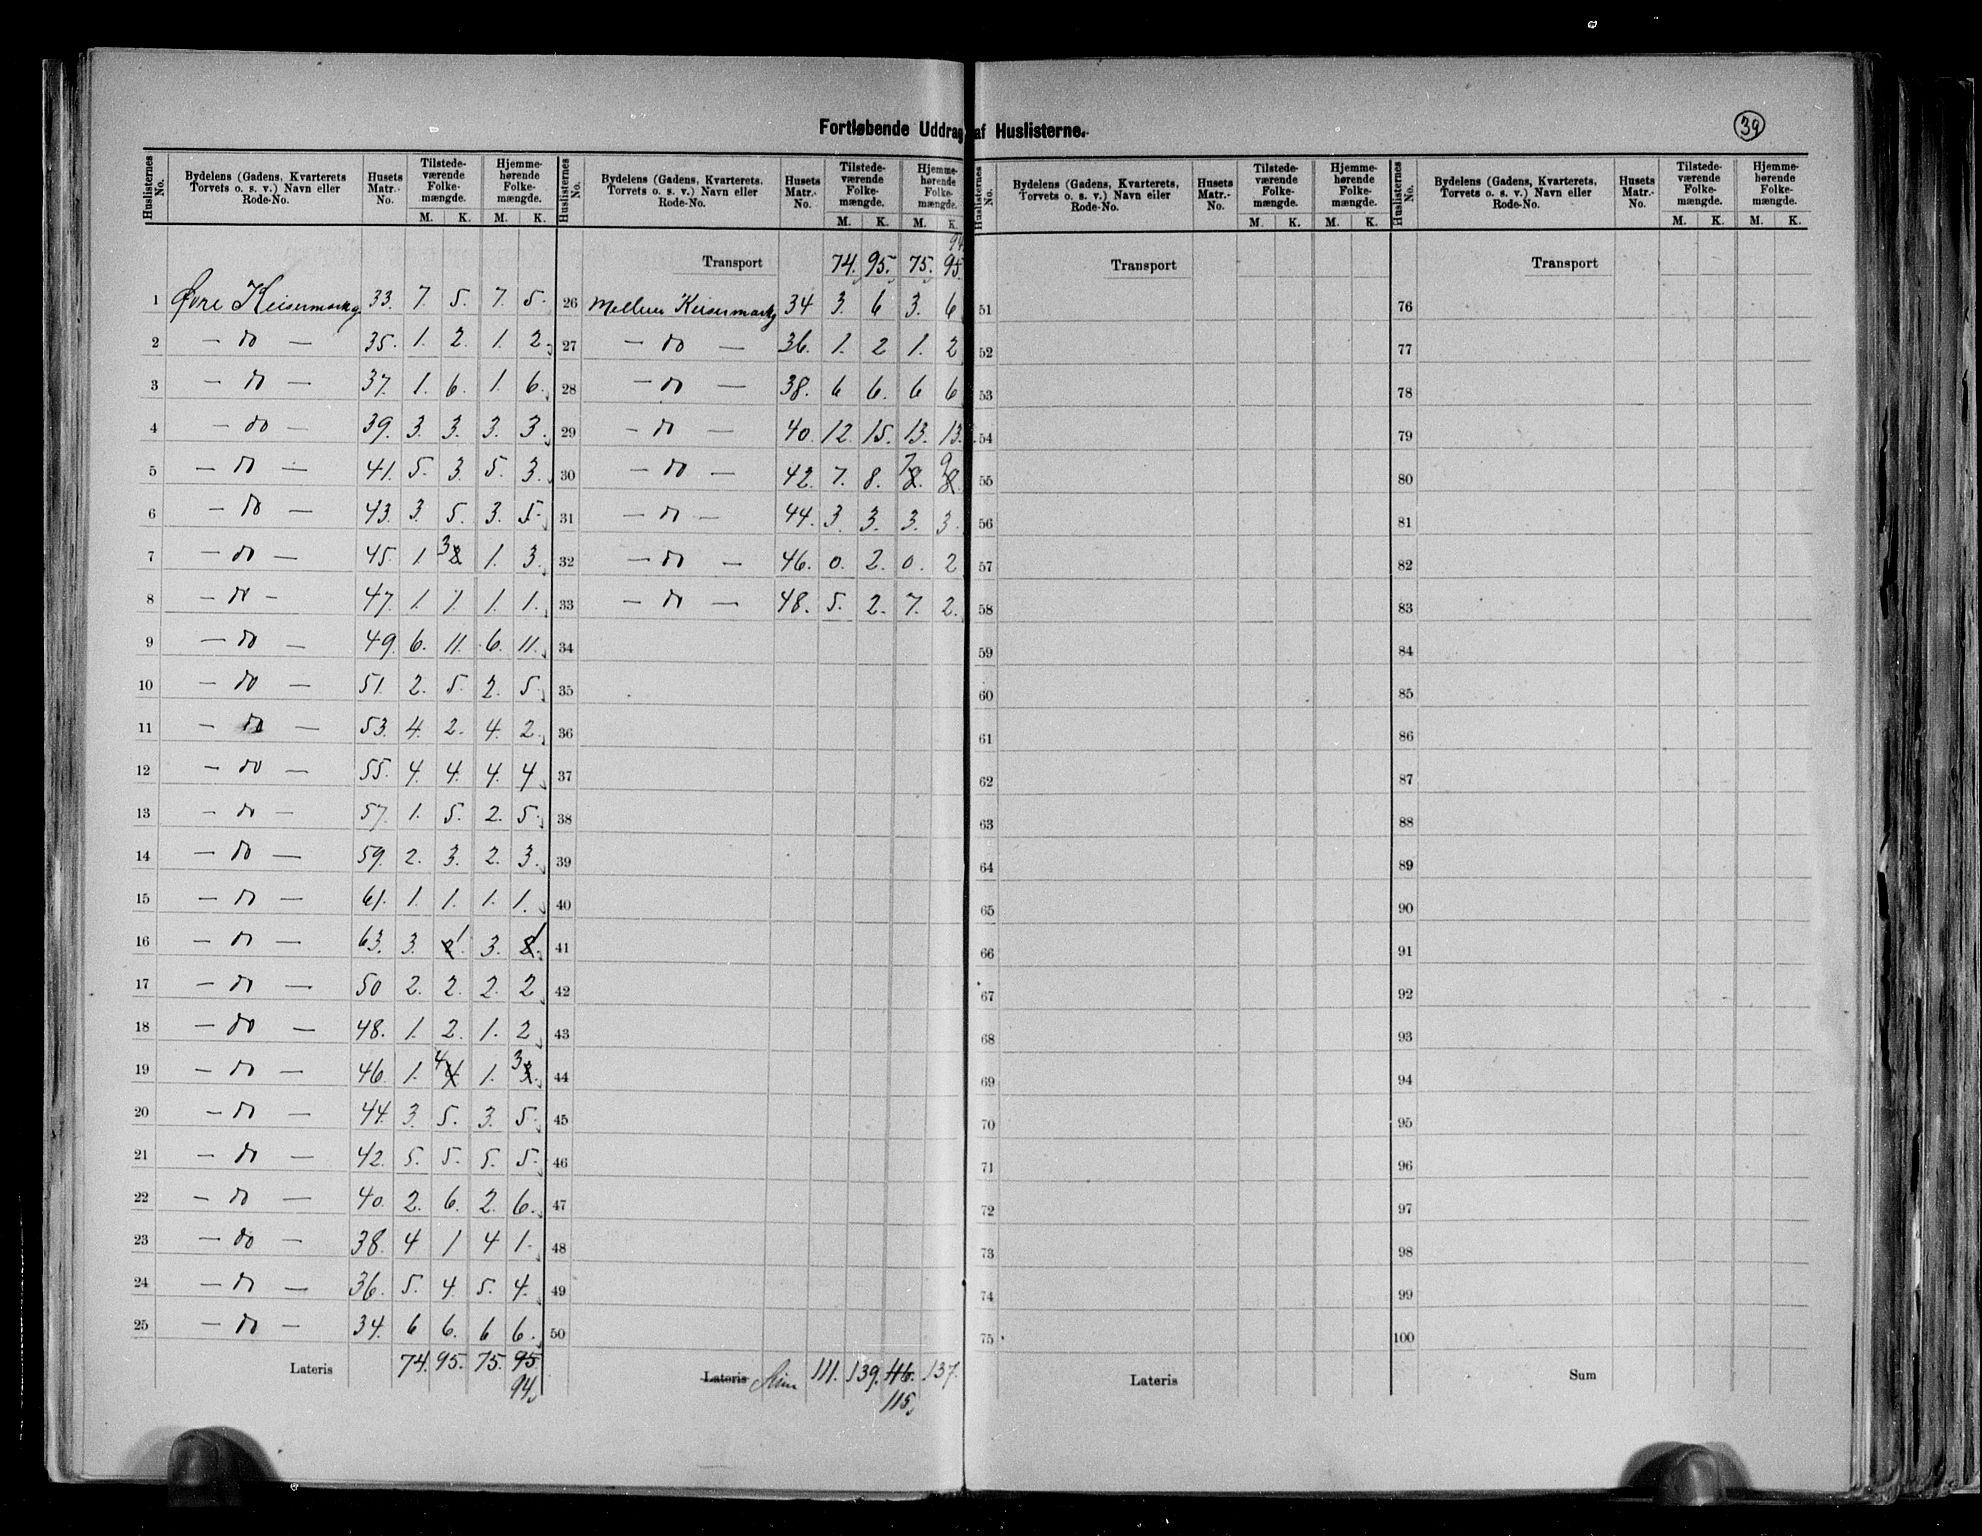 Fortløbende Uddrag af Huslisterne.
39
Huslisternes No. | Bydelens (Gadens, Kvarterets Torvets o. s. v.) Navn eller Rode-No. | Husets Matr.-No. | Tilstede-værende Folke-mængde. M. K. | Hjemme-hørende Folke-mængde. M. K.
1 Øvre Keisermarkg. 33. 7. 5. 7. 5.
2 — do — 35. 1. 2. 1. 2.
3 — do — 37. 1. 6. 1. 6.
4 — do — 39. 3. 3. 3. 3.
5 — do — 41. 5. 3. 5. 3.
6 — do — 43. 3. 5. 3. 5.
7 — do — 45. 1. 3 1. 3.
8 — do — 47. 1. 1. 1. 1.
9 — do — 49. 6. 11. 6. 11.
10 — do — 51. 2. 5. 2. 5.
11 — do — 53. 4. 2. 4. 2.
12 — do — 55. 4. 4. 4. 4
13 — do — 57. 1. 5. 2. 5.
14 — do — 59. 2. 3. 2. 3.
15 — do — 61. 1. 1. 1. 1.
16 — do — 63. 3. 1 3. 1
17 — do — 50 2. 2. 2. 2
18 — do — 48. 1. 2. 1. 2
19 — do — 46. 1. 4 1. 3
20 — do — 44. 3. 5. 3. 5.
21 — do — 42. 5. 5. 5. 5.
22 — do — 40. 2. 6. 2. 6.
23 — do — 38. 4 1 4 1.
24 — do — 36. 5. 4. 5. 4.
25 — do — 34. 6 6. 6 6.
Lateris 74. 95. 75. 95
94
Huslisternes No. | Bydelens (Gadens, Kvarterets, Torvets o. s. v.) Navn eller Rode-No. | Husets Matr.-No. | Tilstede-værende Folke-mængde. M. K. | Hjemme-hørende Folke-mængde. M. K.
94
Transport 74. 95. 75. 95.
26 Mellem Keisermarkg 34 3. 6 3. 6
27 — do — 36. 1. 2 1. 2
28 — do — 38. 6 6. 6 6
29 — do — 40. 12. 15. 13. 13.
30 — do — 42. 7. 8. 7 8. 9 8.
31 — do — 44. 3 3. 3. 3.
32 — do — 46. 0. 2. 0. 2
33 — do — 48. 5. 2. 7. 2.
34
35
36
37
38
39
40
41
42
43
44
45
46
47
48
49
50
Lateris 111. 139. 116. 137.
115
Huslisternes No. | Bydelens (Gadens, Kvarterets, Torvets o. s. v.) Navn eller Rode-No. | Husets Matr.-No. | Tilstede-værende Folke-mængde. M. K. | Hjemme-hørende Folke-mængde. M. K.
Transport
51
52
53
54
55
56
57
58
59
60
61
62
63
64
65
66
67
68
69
70
71
72
73
74
75
Lateris
Huslisternes No. | Bydelens (Gadens, Kvarterets, Torvets o. s. v.) Navn eller Rode-No. | Husets Matr.-No. | Tilstede-værende Folke-mængde. M. K. | Hjemme-hørende Folke-mængde. M. K.
Transport
76
77
78
79
80
81
82
83
84
85
86
87
88
89
90
91
92
93
94
95
96
97
98
99
100
Sum